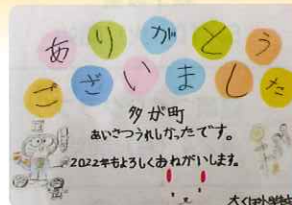 ありがとう
ございました
多が町
あいさつうれしかったです。
2022年もよろしくおねがいします。